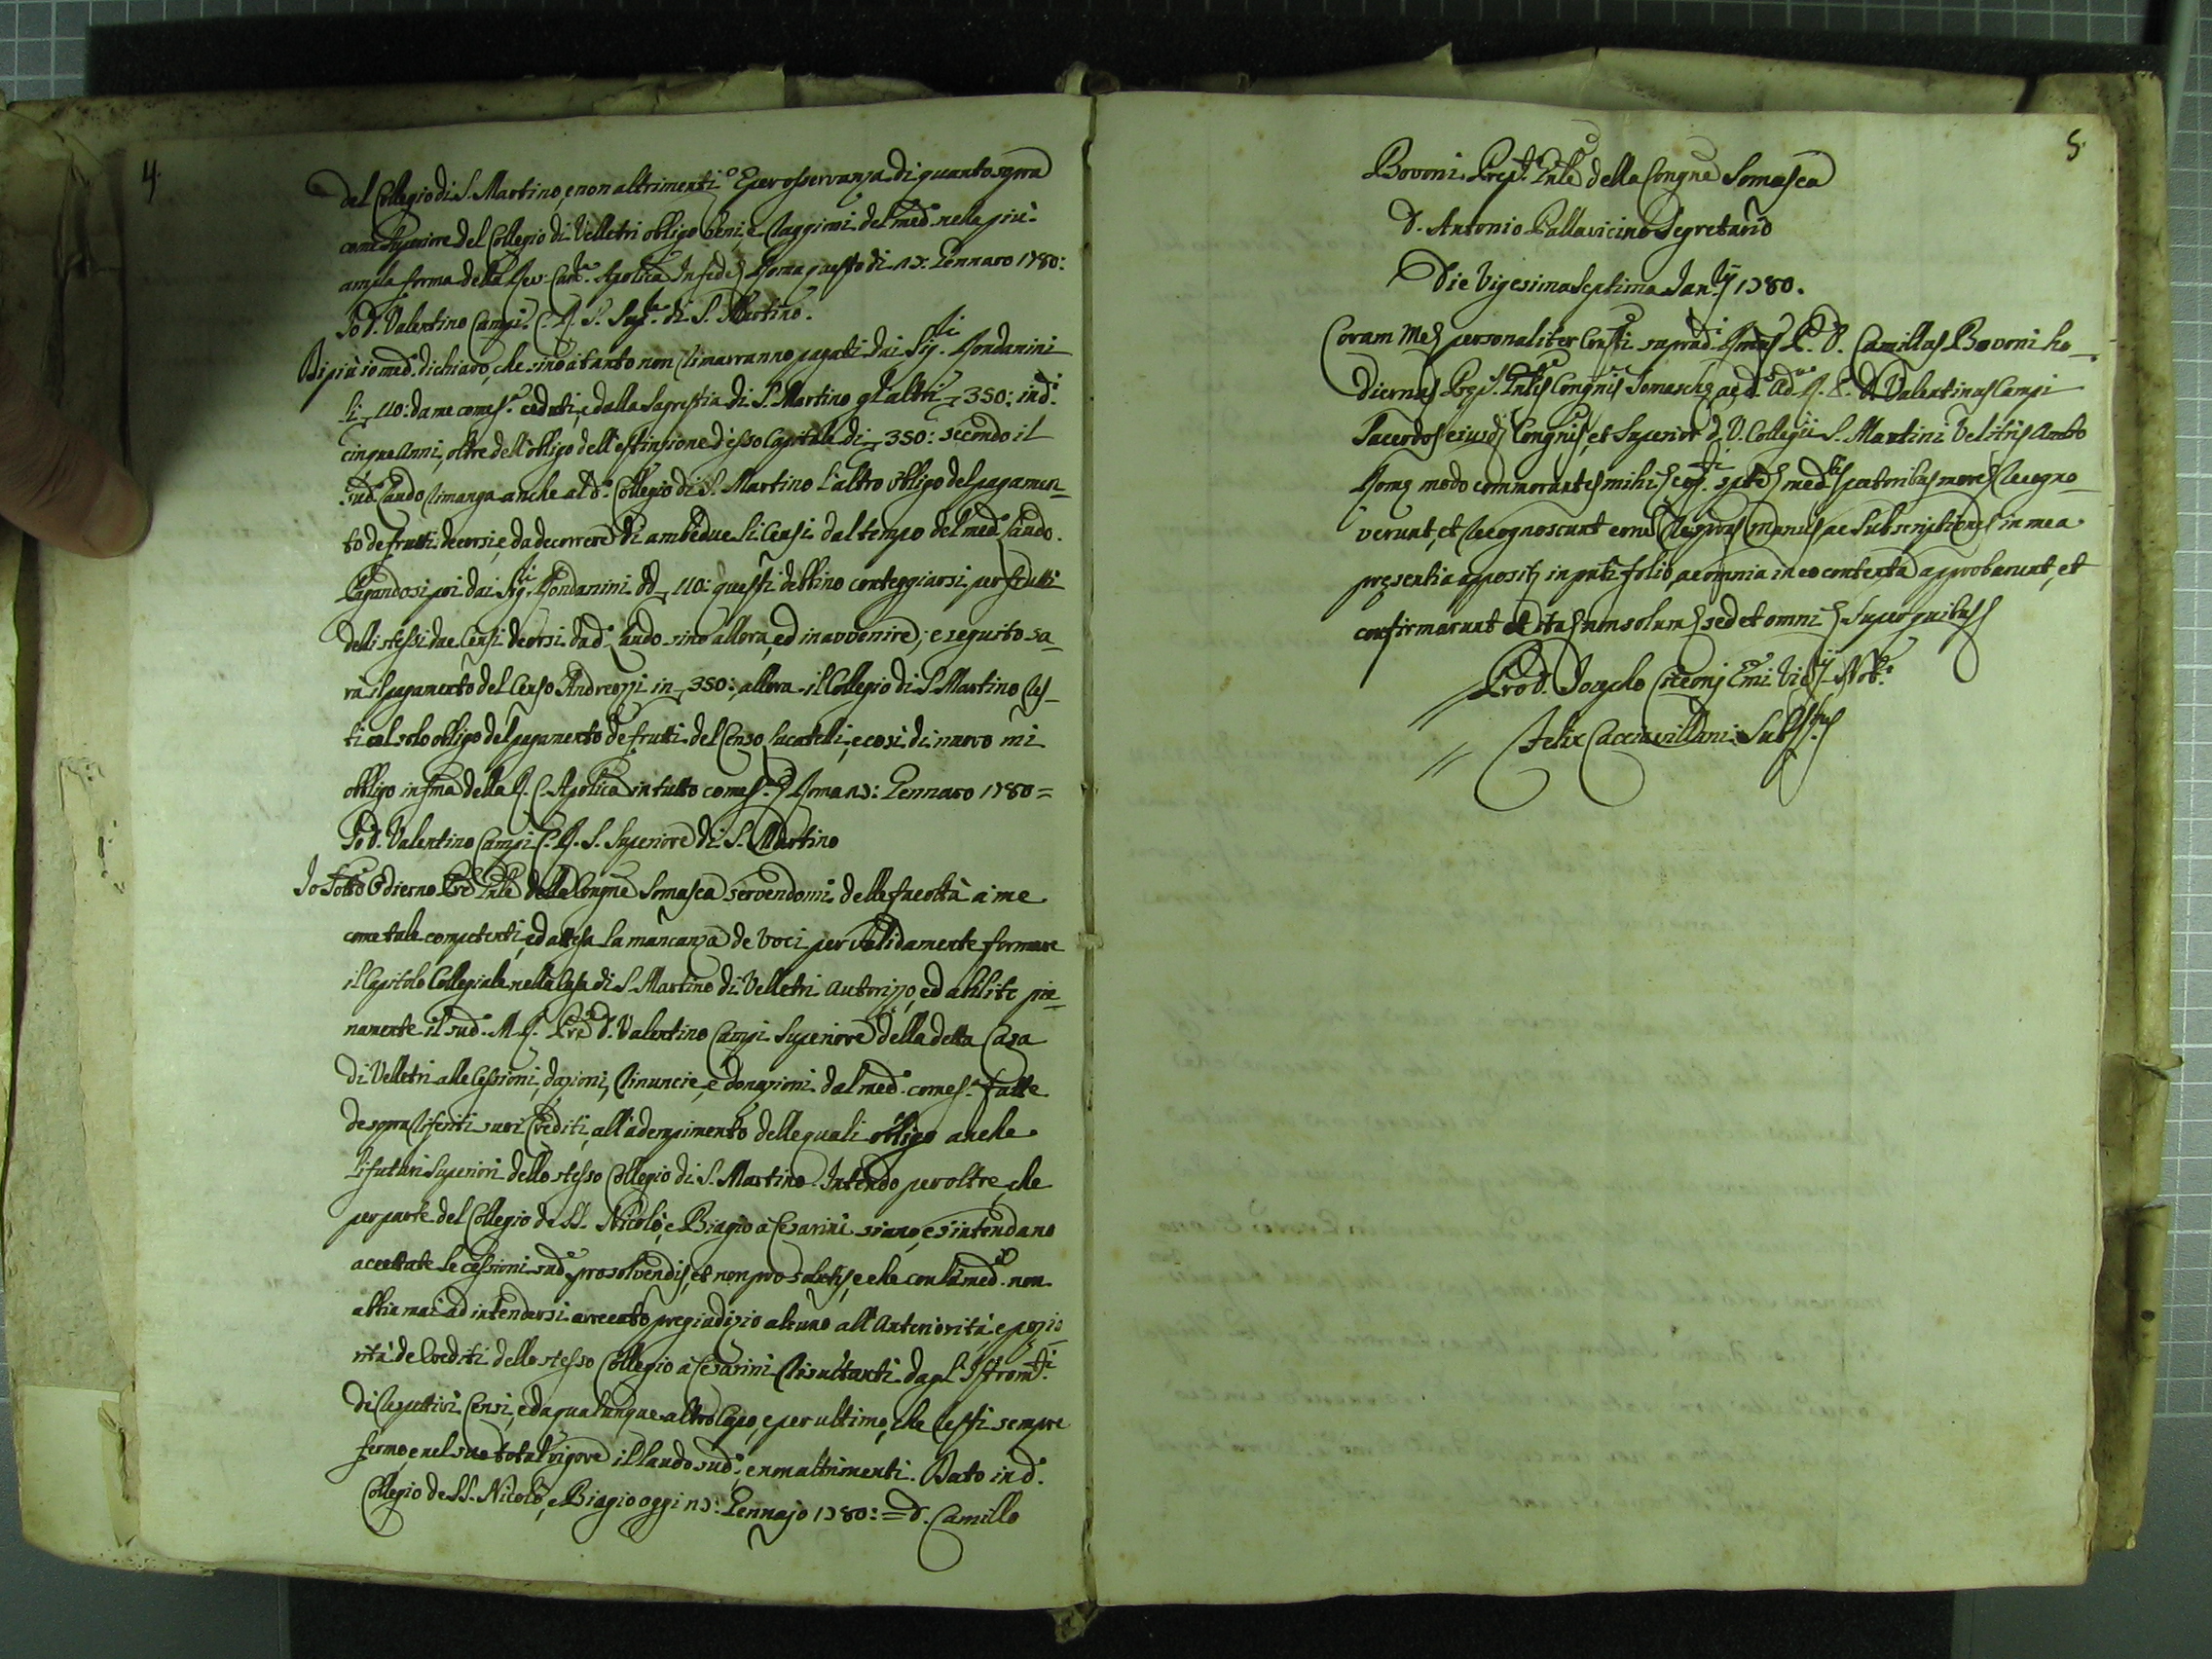 4.
del Collegio di S. Martino, e non altrimenti. E per osservanza di quanto sopra
come Superiore del Collegio di Velletri obligo beni, e raggioni del med.º nella più
ampla forma della Rev. Cam.ª Aplica In fede Roma questo di 27: Gennaro 1780:
Io D. Valentino Campi C. R. S. Sup.re di S. Martino.
Di più io med.º dichiaro, che sino a tanto non rimarranno pagati dai Sig.ri Rondanini
li 110: da me come s.ª ceduti, e dalla Sagrestia di S. Martino gl'altri 350: in d.i
cinque Anni, oltre dell'obligo dell'estinzione d'esso Capitale di 350: secondo il
sud.º Laudo rimanga anche al d.º Collegio di S. Martino l'altro obligo del pagamen-
to de frutti decorsi, e da decorrere di ambedue li Censi dal tempo del med.º Laudo.
Pagandosi poi dai Sig.ri Rondanini dd. 110: questi debbino conteggiarsi per frutti
delli stessi due Censi decorsi dad.º Laudo sino allora, ed in avvenire; e seguito sa-
rà il pagamento del Censo Andreozzi in 350: allora il Collegio di S. Martino res-
ti col solo obligo del pagamento de frutti del Censo Lucatelli, e così di nuovo mi
obbligo in fma della R. C. Aplica in tutto come s.ª Roma 27: Gennaro 1780 =
Io D. Valentino Campi C. R. S. Superiore di S. Martino
Io Sotto Odierno Pre Pnle della Congne Somasca servendomi delle facoltà a me
come tale competenti, ed attesa la mancanza de Voci per validamente formare
il Capitolo Collegiale nella Casa di S. Martino di Velletri Autorizzo, ed abilito pie-
namente il sud.º M. R. Pre D. Valentino Campi Superiore della detta Casa
di Velletri alle Cessioni, dazioni, rinuncie, e donazioni dal med.º come s.ª fatte
de sopra riferiti suoi Crediti, all'adempimento delle quali obligo anche
li futuri Superiori dello stesso Collegio di S. Martino. Intendo per oltre, che
per parte del Collegio de SS. Nicolò, e Biagio a Cesarini siano, e s'intendano
accettate le cessioni sud.e pro solvendis, et non pro solutis, e che con le med.e non
abbia mai ad intendersi arrecato pregiudizio alcuno all'Anteriorità, e pozio-
rità de Crediti dello stesso Collegio a Cesarini risultanti dagl'Istrom.ti
di respettivi Censi, e da qualunque altro Capo, e per ultimo, che resti sempre
fermo, e nel suo total vigore il laudo sud.º, e non altrimenti. Dato in d.º
Collegio de SS. Nicolò, e Biagio oggi 27: Gennajo 1780: = D. Camillo
5.
Bovoni Prep.to Pnle della Congne Somasca
D. Antonio Pallavicino Segretario
Die Vigesima Septima Jan.rij 1780.
Coram Me personaliter Consti suprad.i Rmus P. D. Camillus Bovoni ho-
diernus Prep.s Pntlis Congnis Somaschę ac d.º ad.m R. P. D. Valentinus Campi
Sacerdos ejusd. Congnis, et Superior d. V. Collegii S. Martini Velitris Ambo
Romę modo commorantes mihi cog.ti spte med.is pectoribus more recogno-
verunt, et recognoscunt eorum respvas manus ac Subscriptiones in mea
pręsentia appositę in pnti folio, ac omnia in eo contenta approbarunt, et
confirmarunt et ita non solum sed et omni Super quibus
Pro D. Josepho Cicconj Emi Vic.ij Not.º
Felix Cacciavillani Subst.tus